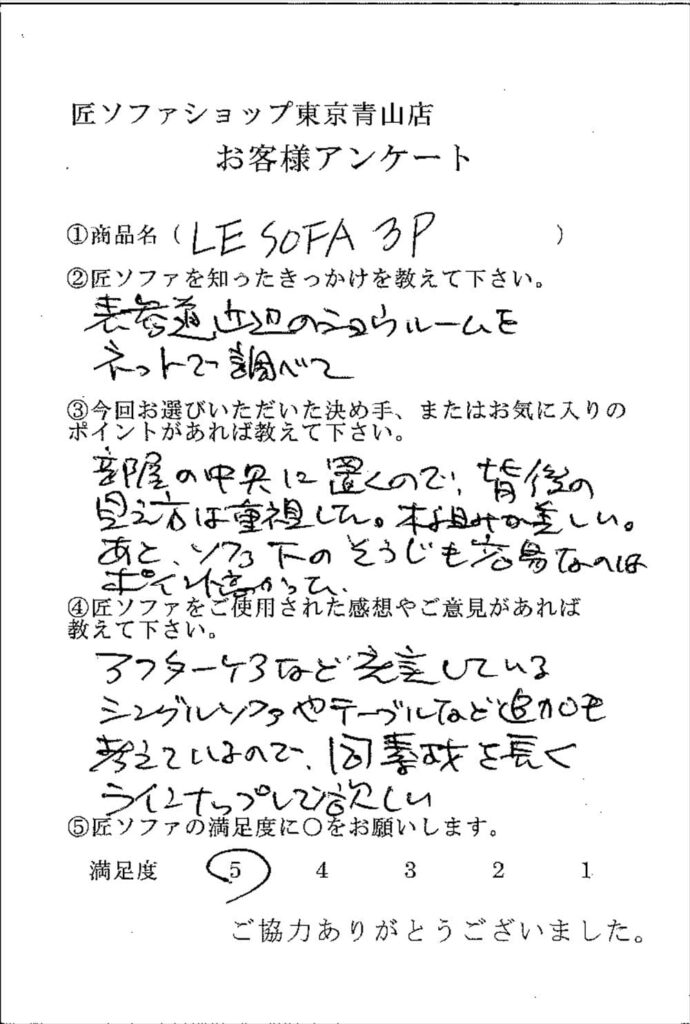 匠ソファショップ東京青山店
お客様アンケート
①商品名（LE SOFA 3P）
②匠ソファを知ったきっかけを教えて下さい。
表参道近辺のショウルームを
ネットで調べて
③今回お選びいただいた決め手、またはお気に入りの
ポイントがあれば教えて下さい。
部屋の中央に置くので、背後の
見え方は重視した。木組みが美しい。
あと、ソファ下のそうじも容易なのは
ポイント高かった。
④匠ソファをご使用された感想やご意見があれば
教えて下さい。
アフターケアなど充実している
シングルソファやテーブルなど追加も
考えているので、同素材を長く
ラインナップして欲しい
⑤匠ソファの満足度に○をお願いします。
満足度 5 4 3 2 1
ご協力ありがとうございました。